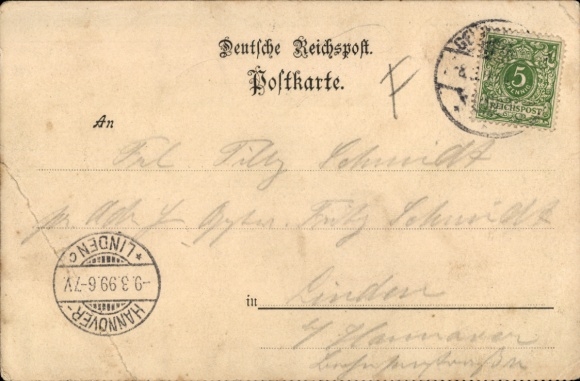 Deutsche Reichspost.
Postkarte.
5
PFENNIG
REICHSPOST
An
Frl Tilly Schmidt
Fritz Schmidt
in Linden
b/ Hannover
HANNOVER-
-9.3.99.6-7V.
* LINDEN c